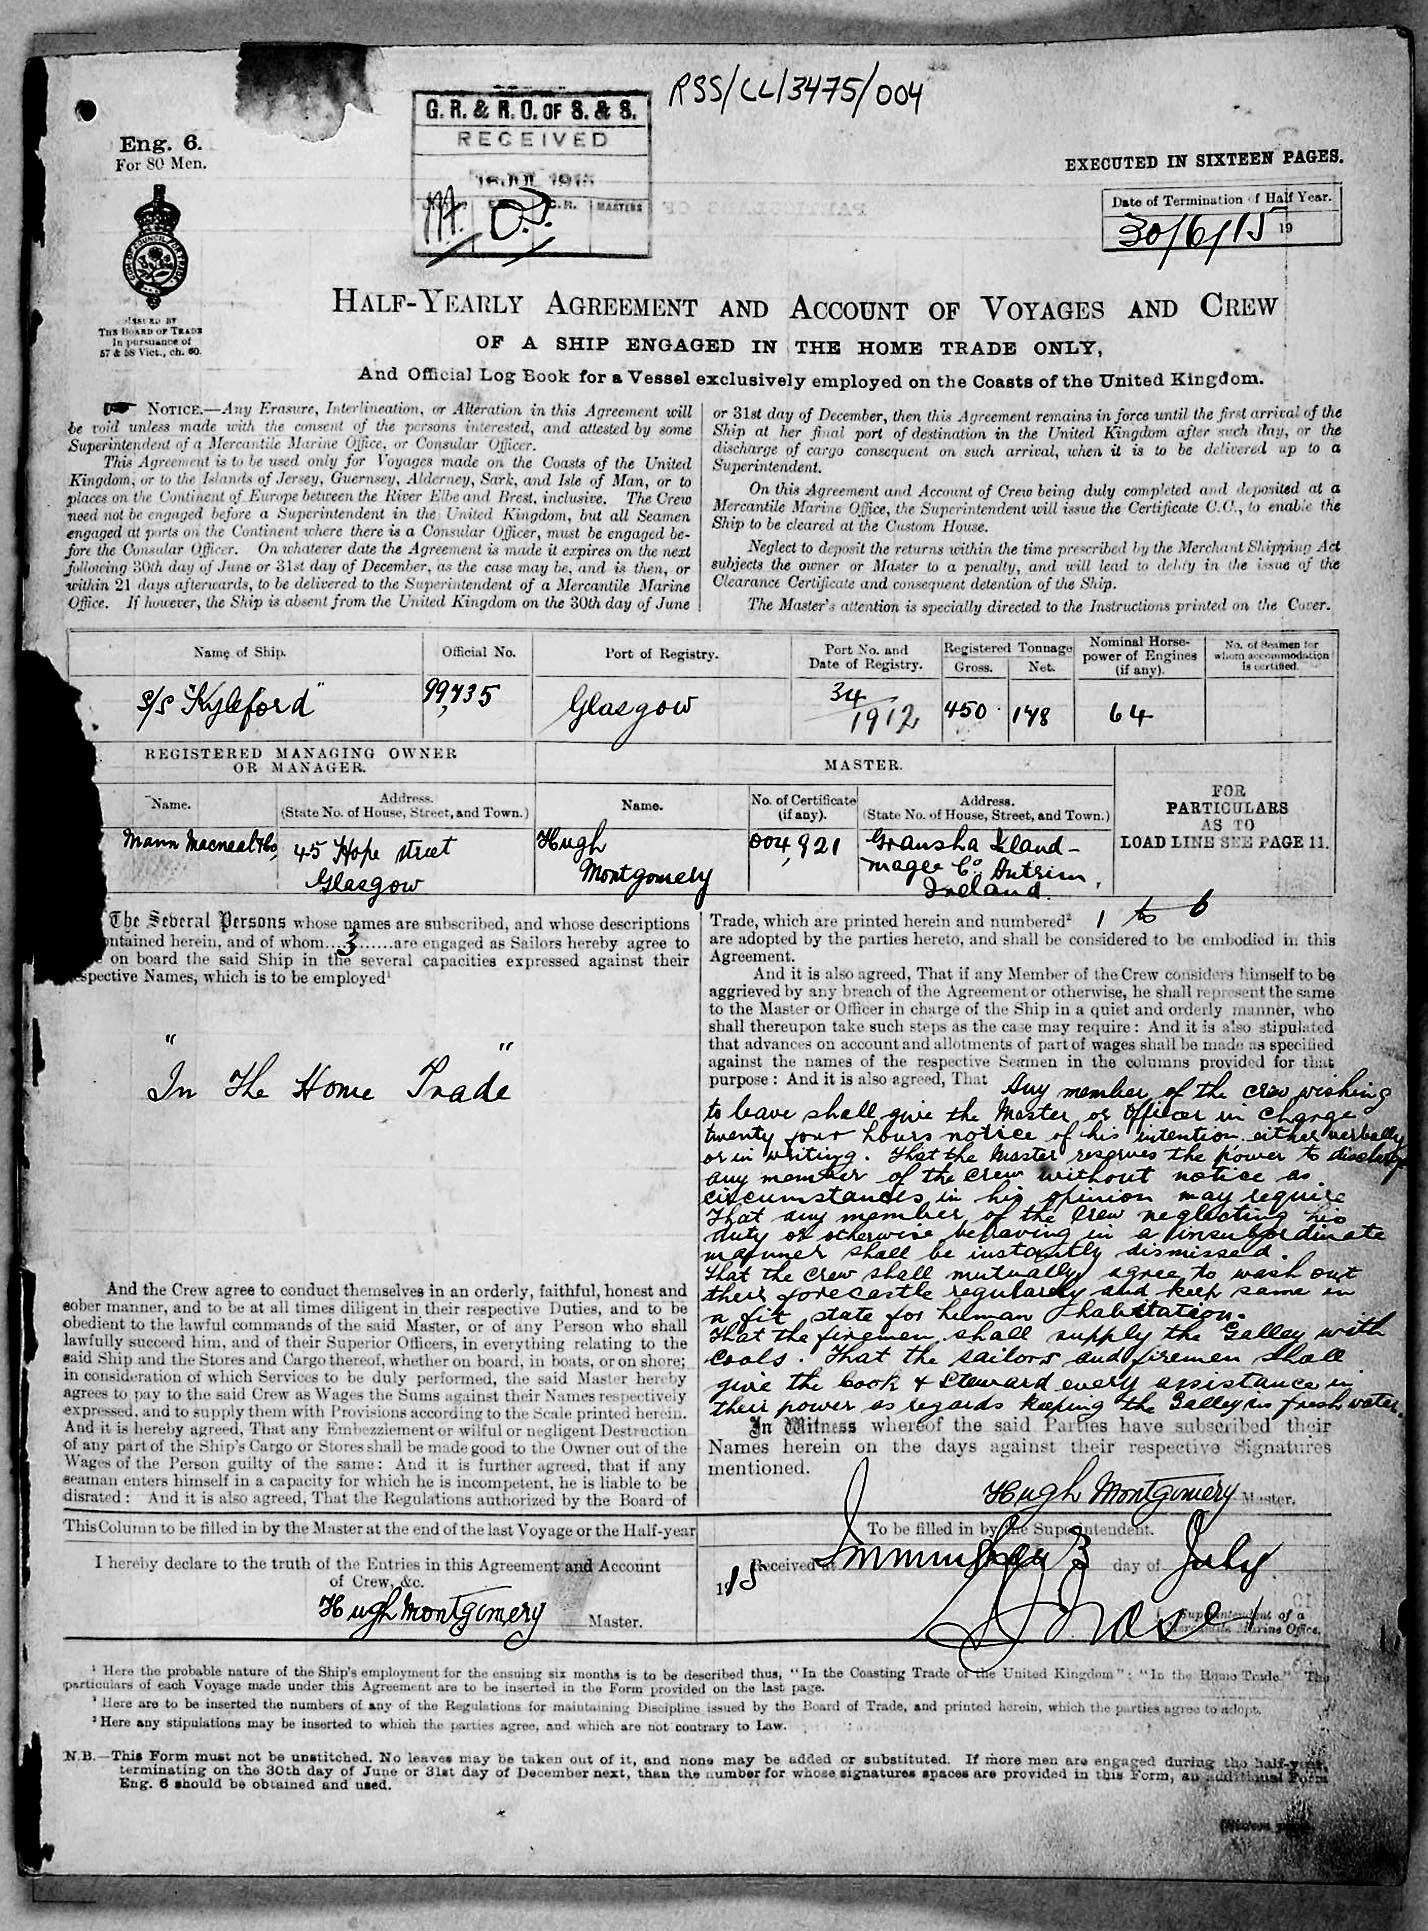 RSS/CL/3475/004
G. R. & R. O. OF S. & S.
RECEIVED
MASTERS
Eng. 6.
For 80 Men.
ISSUED BY
THE BOARD OF TRADE
In pursuance of
57 & 58 Vict., ch. 60.
EXECUTED IN SIXTEEN PAGES.
Date of Termination of Half Year.
30/6/15 19
HALF-YEARLY AGREEMENT AND ACCOUNT OF VOYAGES AND CREW
OF A SHIP ENGAGED IN THE HOME TRADE ONLY,
And Official Log Book for a Vessel exclusively employed on the Coasts of the United Kingdom.
NOTICE.—Any Erasure, Interlineation, or Alteration in this Agreement will
be void unless made with the consent of the persons interested, and attested by some
Superintendent of a Mercantile Marine Office, or Consular Officer.
This Agreement is to be used only for Voyages made on the Coasts of the United
Kingdom, or to the Islands of Jersey, Guernsey, Alderney, Sark, and Isle of Man, or to
places on the Continent of Europe between the River Elbe and Brest, inclusive. The Crew
need not be engaged before a Superintendent in the United Kingdom, but all Seamen
engaged at ports on the Continent where there is a Consular Officer, must be engaged be-
fore the Consular Officer. On whatever date the Agreement is made it expires on the next
following 30th day of June or 31st day of December, as the case may be, and is then, or
within 21 days afterwards, to be delivered to the Superintendent of a Mercantile Marine
Office. If however, the Ship is absent from the United Kingdom on the 30th day of June
or 31st day of December, then this Agreement remains in force until the first arrival of the
Ship at her final port of destination in the United Kingdom after such day, or the
discharge of cargo consequent on such arrival, when it is to be delivered up to a
Superintendent.
On this Agreement and Account of Crew being duly completed and deposited at a
Mercantile Marine Office, the Superintendent will issue the Certificate C.C., to enable the
Ship to be cleared at the Custom House.
Neglect to deposit the returns within the time prescribed by the Merchant Shipping Act
subjects the owner or Master to a penalty, and will lead to delay in the issue of the
Clearance Certificate and consequent detention of the Ship.
The Master's attention is specially directed to the Instructions printed on the Cover.
Name of Ship. Official No. Port of Registry. Port No. and Date of Registry. Registered Tonnage Gross. Net. Nominal Horse-power of Engines (if any). No. of Seamen for whom accommodation is certified.
S/S "Kyleford" 99,735 Glasgow 34/1912 450 178 64
REGISTERED MANAGING OWNER
OR MANAGER.
MASTER.
Name. Address. (State No. of House, Street, and Town.) Name. No. of Certificate (if any). Address. (State No. of House, Street, and Town.)
FOR
PARTICULARS
AS TO
LOAD LINE SEE PAGE 11.
Mann Macneal & Co, 45 Hope Street Hugh 004,921 Gransha Island-
Glasgow Montgomery magee Co. Antrim,
Ireland.
The Several Persons whose names are subscribed, and whose descriptions
ontained herein, and of whom....3......are engaged as Sailors hereby agree to
on board the said Ship in the several capacities expressed against their
espective Names, which is to be employed¹
"In The Home Trade"
And the Crew agree to conduct themselves in an orderly, faithful, honest and
sober manner, and to be at all times diligent in their respective Duties, and to be
obedient to the lawful commands of the said Master, or of any Person who shall
lawfully succeed him, and of their Superior Officers, in everything relating to the
said Ship and the Stores and Cargo thereof, whether on board, in boats, or on shore;
in consideration of which Services to be duly performed, the said Master hereby
agrees to pay to the said Crew as Wages the Sums against their Names respectively
expressed, and to supply them with Provisions according to the Scale printed herein.
And it is hereby agreed, That any Embezzlement or wilful or negligent Destruction
of any part of the Ship's Cargo or Stores shall be made good to the Owner out of the
Wages of the Person guilty of the same: And it is further agreed, that if any
seaman enters himself in a capacity for which he is incompetent, he is liable to be
disrated: And it is also agreed, That the Regulations authorized by the Board of
Trade, which are printed herein and numbered² 1 to 6
are adopted by the parties hereto, and shall be considered to be embodied in this
Agreement.
And it is also agreed, That if any Member of the Crew considers himself to be
aggrieved by any breach of the Agreement or otherwise, he shall represent the same
to the Master or Officer in charge of the Ship in a quiet and orderly manner, who
shall thereupon take such steps as the case may require: And it is also stipulated
that advances on account and allotments of part of wages shall be made as specified
against the names of the respective Seamen in the columns provided for that
purpose: And it is also agreed, That Any member of the crew wishing
to leave shall give the Master or Officer in charge
twenty four hours notice of his intention either verbally
or in writing. That the Master reserves the power to discharge
any member of the crew without notice as
circumstances in his opinion may require
That any member of the Crew neglecting his
duty or otherwise behaving in a insubordinate
manner shall be instantly dismissed.
That the crew shall mutually agree to wash out
their forecastle regularly and keep same in
a fit state for human habitation.
That the firemen shall supply the Galley with
Coals. That the sailors and firemen shall
give the Cook & Steward every assistance in
their power as regards keeping the Galley in fresh water.
In Witness whereof the said Parties have subscribed their
Names herein on the days against their respective Signatures
mentioned.
Hugh Montgomery Master.
This Column to be filled in by the Master at the end of the last Voyage or the Half-year
I hereby declare to the truth of the Entries in this Agreement and Account
of Crew, &c.
Hugh Montgomery Master.
To be filled in by the Superintendent.
Received at Immingham 3 day of July
1915
Superintendent of a
Mercantile Marine Office.
¹ Here the probable nature of the Ship's employment for the ensuing six months is to be described thus, "In the Coasting Trade of the United Kingdom": "In the Home Trade." The
particulars of each Voyage made under this Agreement are to be inserted in the Form provided on the last page.
² Here are to be inserted the numbers of any of the Regulations for maintaining Discipline issued by the Board of Trade, and printed herein, which the parties agree to adopt.
³ Here any stipulations may be inserted to which the parties agree, and which are not contrary to Law.
N.B.—This Form must not be unstitched. No leaves may be taken out of it, and none may be added or substituted. If more men are engaged during the half-year,
terminating on the 30th day of June or 31st day of December next, than the number for whose signatures spaces are provided in this Form, an additional Form
Eng. 6 should be obtained and used.